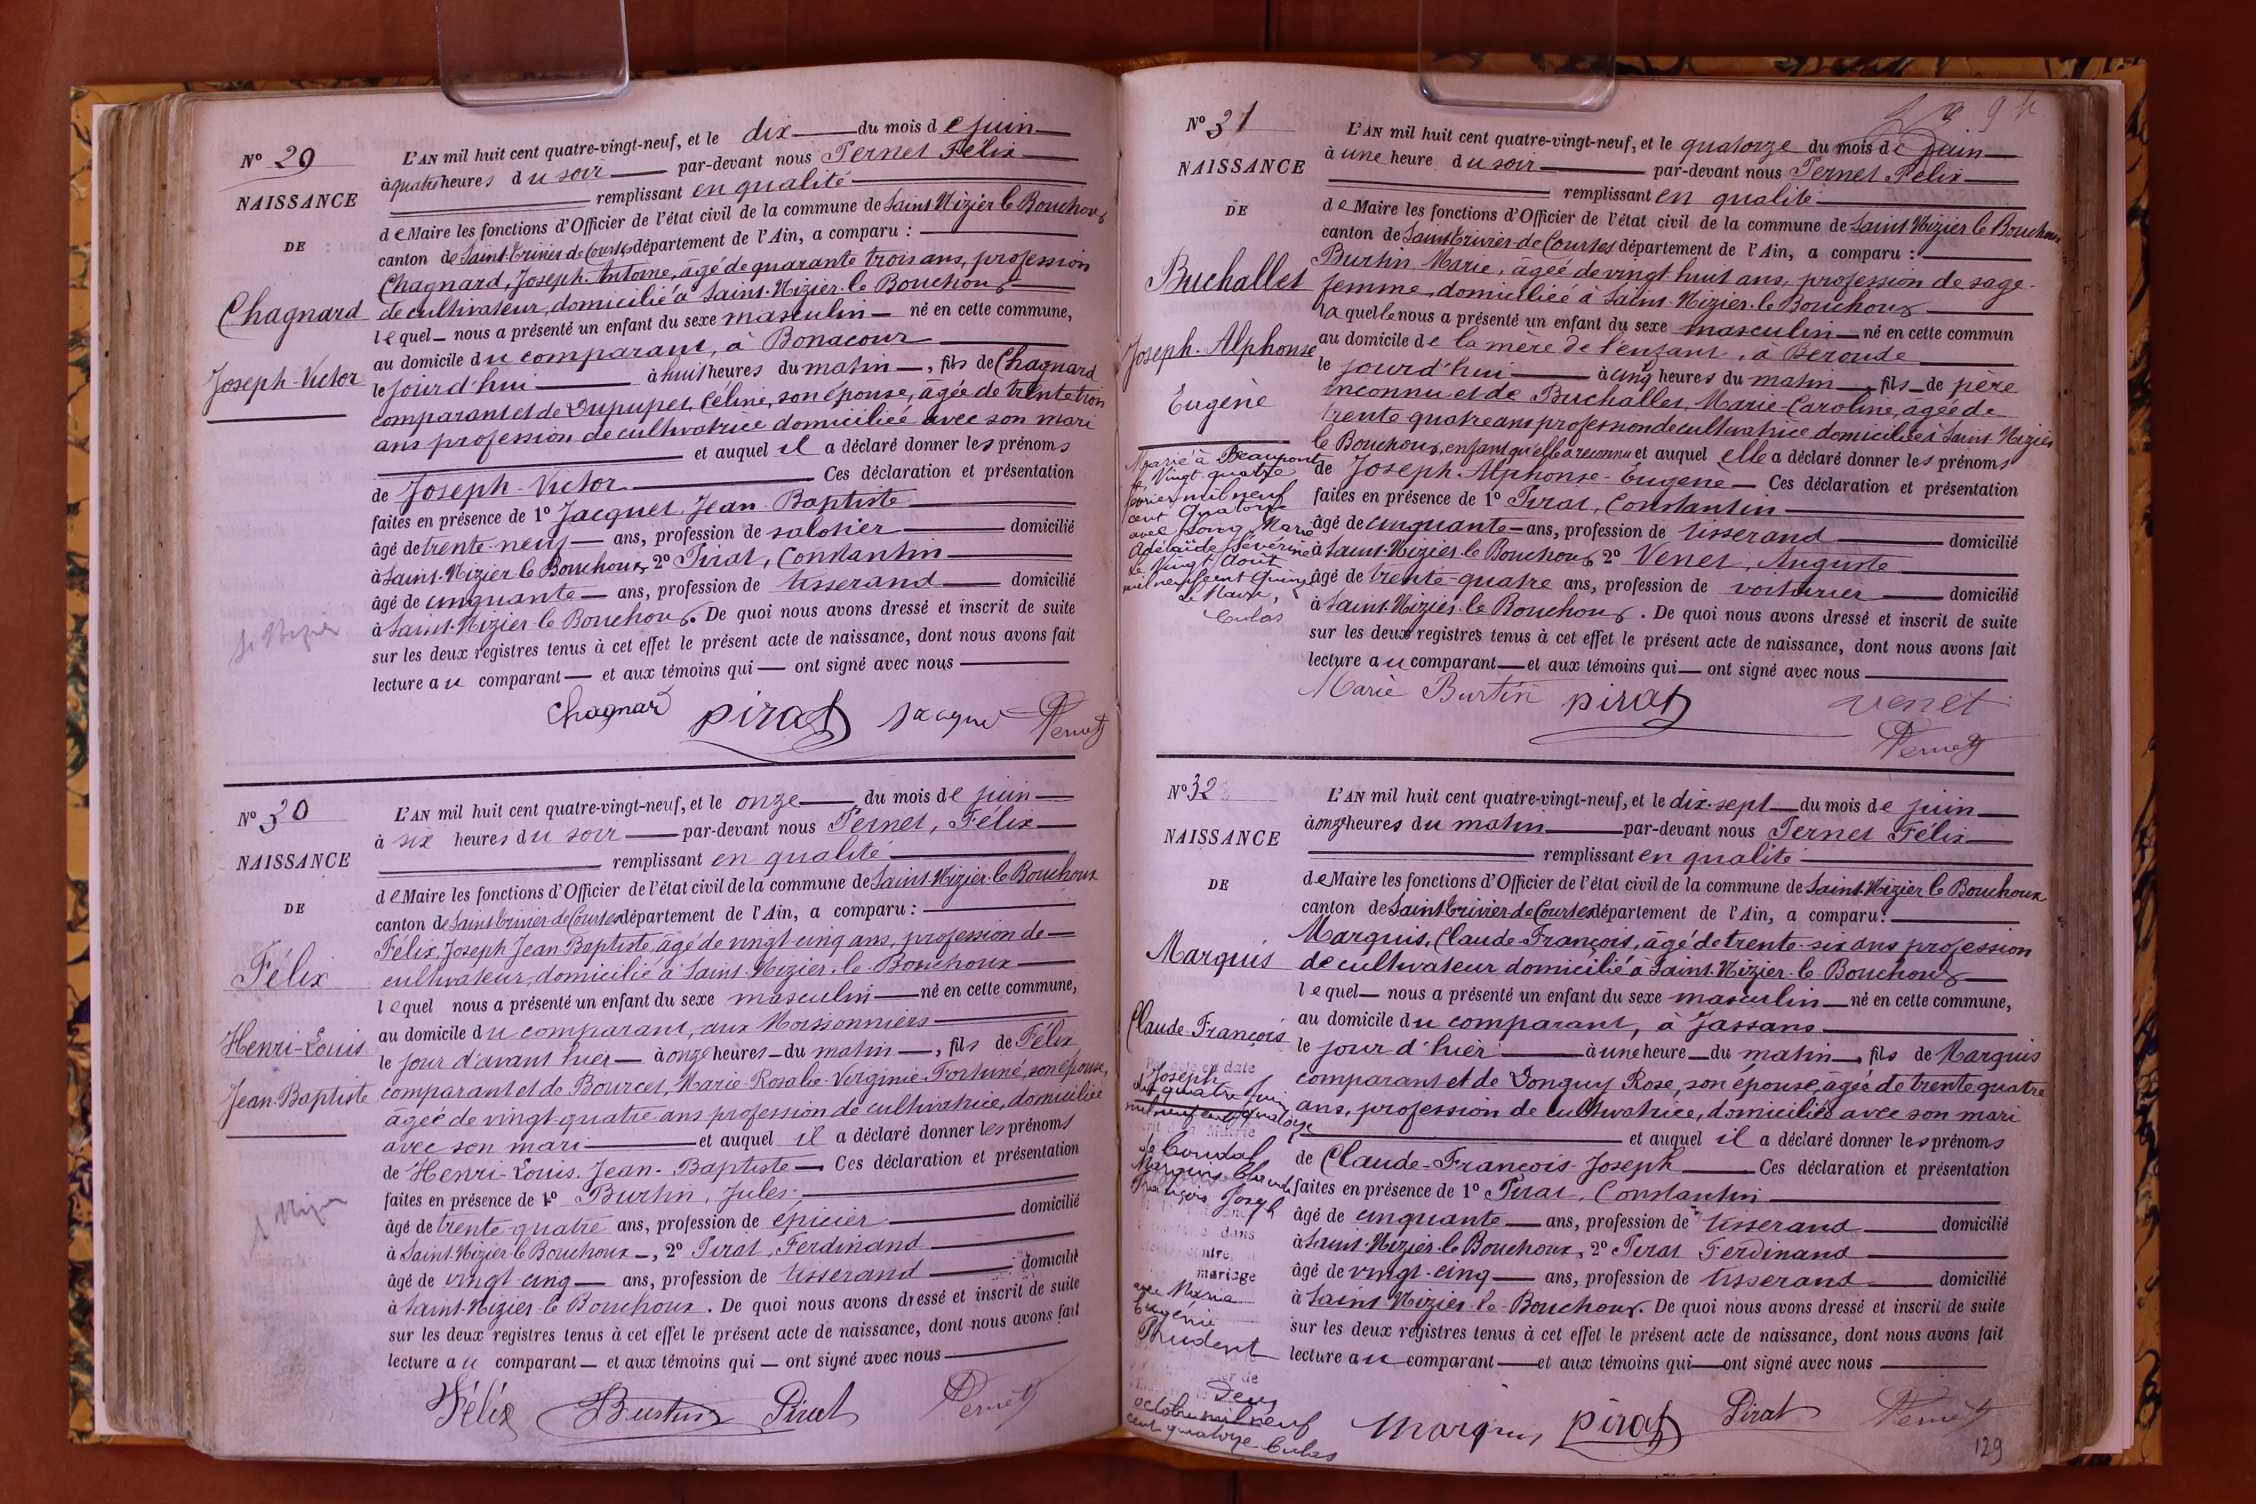 N° 29
NAISSANCE
DE
Chagnard
Joseph-Victor
L'AN mil huit cent quatre-vingt-neuf, et le dix du mois de juin
à quatre heures du soir par-devant nous Pernet Félix
remplissant en qualité
de Maire les fonctions d'Officier de l'état civil de la commune de Saint-Nizier le Bouchoux
canton de Saint-Trivier de Courtes département de l'Ain, a comparu :
Chagnard, Joseph-Antoine, âgé de quarante trois ans, profession
de cultivateur, domicilié à Saint-Nizier-le Bouchoux
lequel nous a présenté un enfant du sexe masculin né en cette commune,
au domicile du comparant, à Bonacour
le jourd'hui à huit heures du matin, fils de Chagnard
comparant et de Dupupet, Céline, son épouse, âgée de trente trois
ans profession de cultivatrice domiciliée avec son mari
et auquel il a déclaré donner les prénoms
de Joseph-Victor Ces déclaration et présentation
faites en présence de 1° Jacquet, Jean-Baptiste
âgé de trente-neuf ans, profession de sabotier domicilié
à Saint-Nizier le Bouchoux, 2° Pirat, Constantin
âgé de cinquante ans, profession de tisserand domicilié
à Saint-Nizier-le Bouchoux. De quoi nous avons dressé et inscrit de suite
sur les deux registres tenus à cet effet le présent acte de naissance, dont nous avons fait
lecture au comparant et aux témoins qui ont signé avec nous
Chagnard pirat Jacquet Pernet
N° 30
NAISSANCE
DE
Félix
Henri-Louis
Jean-Baptiste
L'AN mil huit cent quatre-vingt-neuf, et le onze du mois de juin
à six heures du soir par-devant nous Pernet, Félix
remplissant en qualité
de Maire les fonctions d'Officier de l'état civil de la commune de Saint-Nizier-le Bouchoux
canton de Saint-Trivier-de Courtes département de l'Ain, a comparu :
Félix, Joseph Jean Baptiste âgé de vingt-cinq ans, profession de
cultivateur, domicilié à Saint-Nizier-le-Bouchoux
lequel nous a présenté un enfant du sexe masculin né en cette commune,
au domicile du comparant, aux Moissonniers
le jour d'avant hier à onze heures du matin, fils de Félix
comparant et de Bourcet, Marie-Rosalie-Virginie-Fortuné, son épouse,
âgée de vingt-quatre ans profession de cultivatrice, domiciliée
avec son mari et auquel il a déclaré donner les prénoms
de Henri-Louis-Jean-Baptiste. Ces déclaration et présentation
faites en présence de 1° Burtin, Jules
âgé de trente-quatre ans, profession de épicier domicilié
à Saint-Nizier-le Bouchoux, 2° Pirat, Ferdinand
âgé de vingt-cinq ans, profession de tisserand domicilié
à Saint-Nizier-le Bouchoux. De quoi nous avons dressé et inscrit de suite
sur les deux registres tenus à cet effet le présent acte de naissance, dont nous avons fait
lecture au comparant et aux témoins qui ont signé avec nous
Félix Burtin Pirat Pernet
N° 31
NAISSANCE
DE
Buchallet
Joseph-Alphonse
Eugène
Marié à Beaupont
le Vingt quatre
février mil neuf
cent Quatorze
avec
Marie
Adélaïde Séverine
le Vingt Août
mil neuf cent Quinze
Le Maire,
L'AN mil huit cent quatre-vingt-neuf, et le quatorze du mois de Juin
à une heure du soir par-devant nous Pernet Félix
remplissant en qualité
de Maire les fonctions d'Officier de l'état civil de la commune de Saint-Nizier le Bouchoux
canton de Saint-Trivier-de Courtes département de l'Ain, a comparu :
Burtin Marie, âgée de vingt huit ans, profession de sage-
femme, domiciliée à Saint-Nizier-le Bouchoux
laquelle nous a présenté un enfant du sexe masculin né en cette commun
au domicile de la mère de l'enfant, à Beroude
le jourd'hui à cinq heures du matin, fils de père
inconnu et de Buchallet, Marie-Caroline, âgée de
trente quatre ans profession de cultivatrice domiciliée à Saint-Nizier
le Bouchoux, enfant qu'elle a reconnu et auquel elle a déclaré donner les prénoms
de Joseph-Alphonse-Eugène Ces déclaration et présentation
faites en présence de 1° Pirat, Constantin
âgé de cinquante ans, profession de tisserand domicilié
à Saint-Nizier-le Bouchoux 2° Venet, Auguste
âgé de trente-quatre ans, profession de voiturier domicilié
à Saint-Nizier-le Bouchoux. De quoi nous avons dressé et inscrit de suite
sur les deux registres tenus à cet effet le présent acte de naissance, dont nous avons fait
lecture au comparant et aux témoins qui ont signé avec nous
Marie Burtin pirat venet
Pernet
N° 32
NAISSANCE
DE
Marquis
Claude-François
Joseph
mil neuf cent quatorze
Marquis Claude
François Joseph
dans
mariage
avec Maria
Eugénie
Prudent
Deux
octobre mil neuf
cent quatorze
L'AN mil huit cent quatre-vingt-neuf, et le dix-sept du mois de juin
à onze heures du matin par-devant nous Pernet Félix
remplissant en qualité
de Maire les fonctions d'Officier de l'état civil de la commune de Saint-Nizier le Bouchoux
canton de Saint-Trivier-de Courtes département de l'Ain, a comparu :
Marquis, Claude-François, âgé de trente-six ans profession
de cultivateur domicilié à Saint-Nizier-le Bouchoux
lequel nous a présenté un enfant du sexe masculin né en cette commune,
au domicile du comparant, à Jassans
le jour d'hier à une heure du matin, fils de Marquis
comparant et de Donguy Rose, son épouse, âgée de trente quatre
ans, profession de cultivatrice, domiciliée avec son mari
et auquel il a déclaré donner les prénoms
de Claude-François-Joseph Ces déclaration et présentation
faites en présence de 1° Pirat, Constantin
âgé de cinquante ans, profession de tisserand domicilié
à Saint-Nizier-le Bouchoux, 2° Pirat Ferdinand
âgé de vingt-cinq ans, profession de tisserand domicilié
à Saint-Nizier-le-Bouchoux. De quoi nous avons dressé et inscrit de suite
sur les deux registres tenus à cet effet le présent acte de naissance, dont nous avons fait
lecture au comparant et aux témoins qui ont signé avec nous
Marquis pirat Pirat Pernet
129